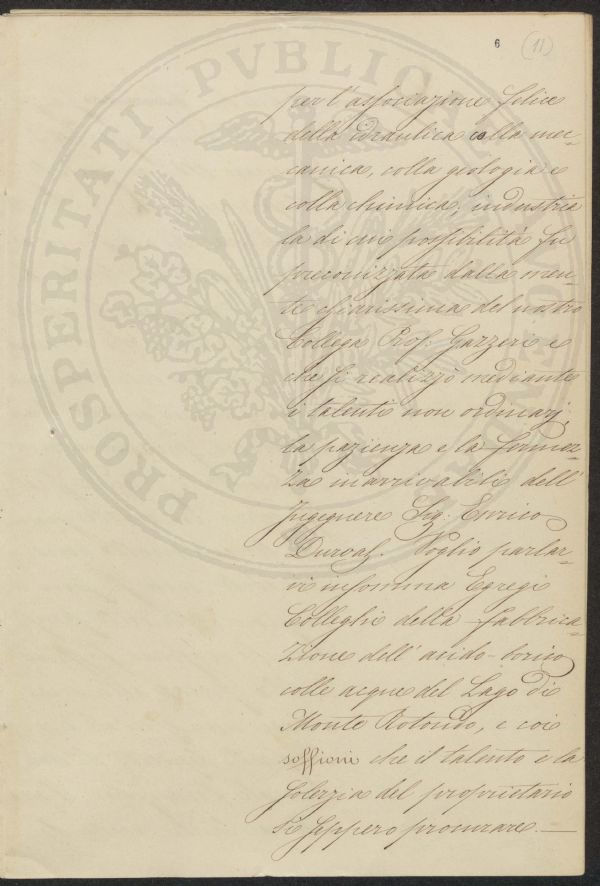 6 (11)
PROSPERITATI PVBLICAE
per l'associazione felice
della idraulica colla mec-
canica, colla geologia e
colla chimica, industria
la di cui possibilità fu
preconizzata dalla men-
te chiarissima del nostro
Collega Prof. Gazzeri e
che si realizzò mediante
i talenti non ordinarj,
la pazienza e la fermez-
za inarrivabili dell'
Ingegnere Sig. Enrico
Durval. Voglio parlar-
vi insomma Egregi
Colleghi della fabbrica-
zione dell'acido-borico
colle acque del Lago di
Monte Rotondo, e coi
soffioni che il talento e la
solerzia del proprietario
si seppero procurare.—